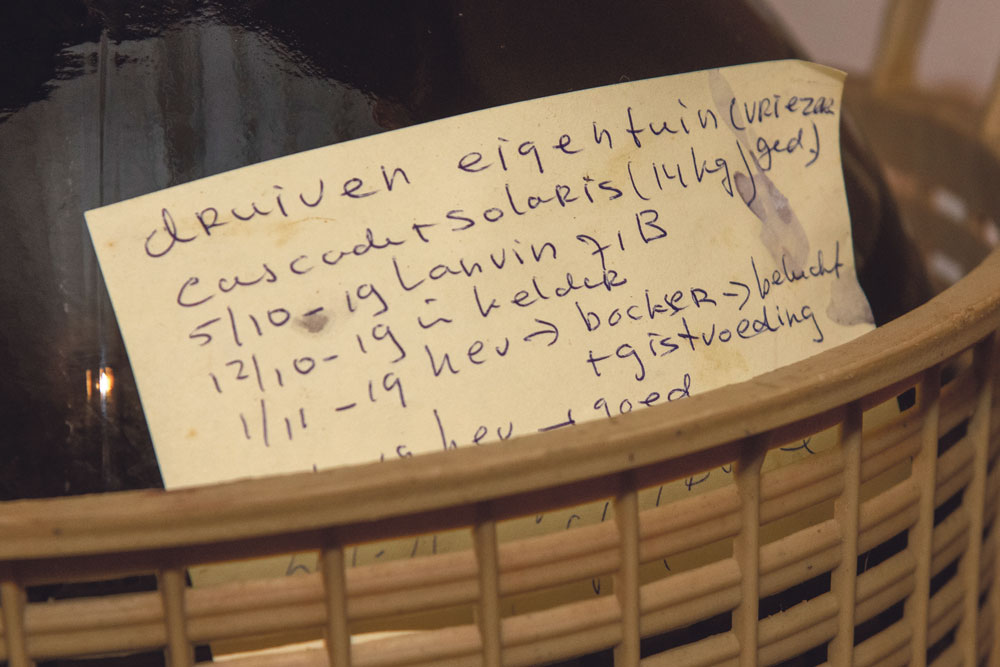 druiven eigentuin (VRIEZER
cascade + SOLARIS (14 kg) ged.)
5/10-19 Lanvin 71B
12/10-19 in keldeR
1/11-19 hev → bockser → belucht
+ gistvoeding
hev → goed